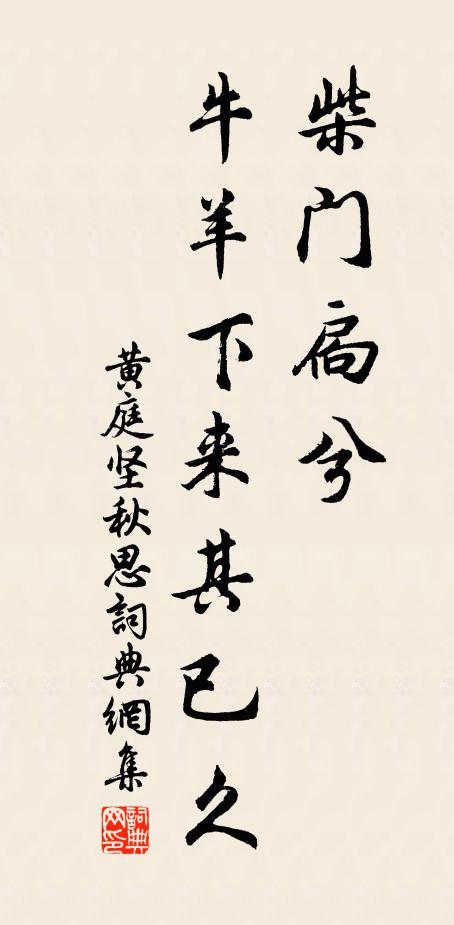 柴门扃兮
牛羊下来其已久
黄庭坚秋思詞典網集
詞典
网印